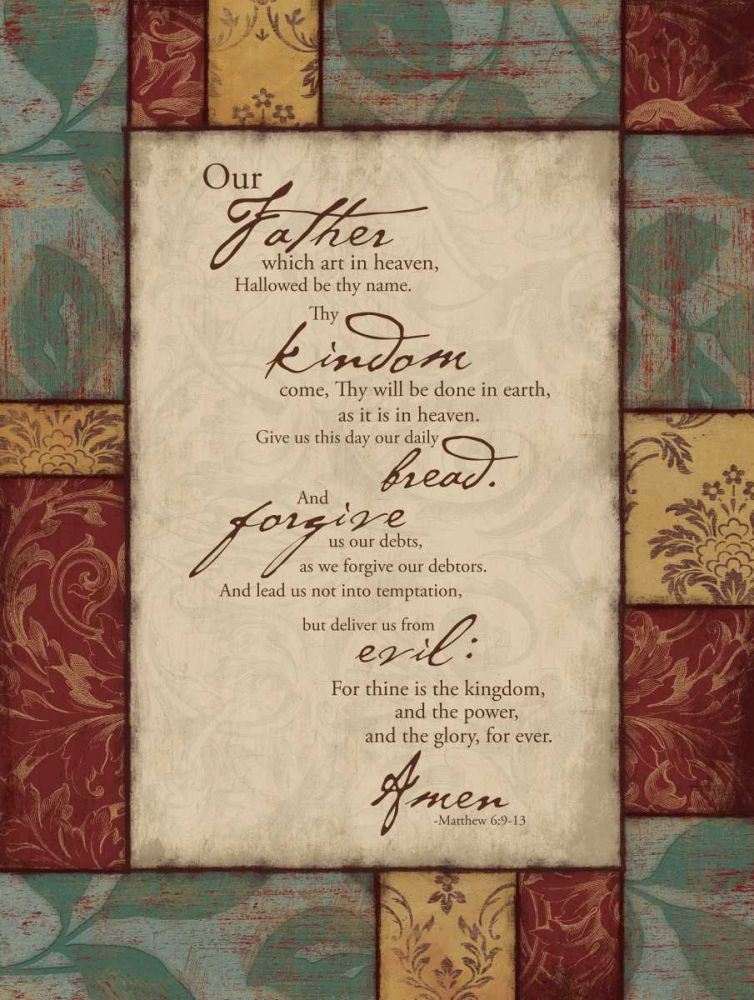 Our
Father
which art in heaven,
Hallowed be thy name.
Thy
kindom
come, Thy will be done in earth,
as it is in heaven.
Give us this day our daily
bread.
And
forgive
us our debts,
as we forgive our debtors.
And lead us not into temptation,
but deliver us from
evil:
For thine is the kingdom,
and the power,
and the glory, for ever.
Amen
-Matthew 6:9-13